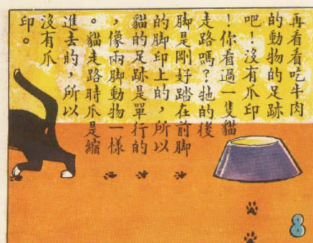 再看看吃牛肉
的動物的足跡
吧!沒有爪印
!你看過一隻貓
走路嗎?牠的後
脚是剛好踏在前脚
的脚印上的,所以
貓的足跡是單行的
,像兩脚動物一樣
。貓走路時爪是縮
進去的,所以
沒有爪
印。
8